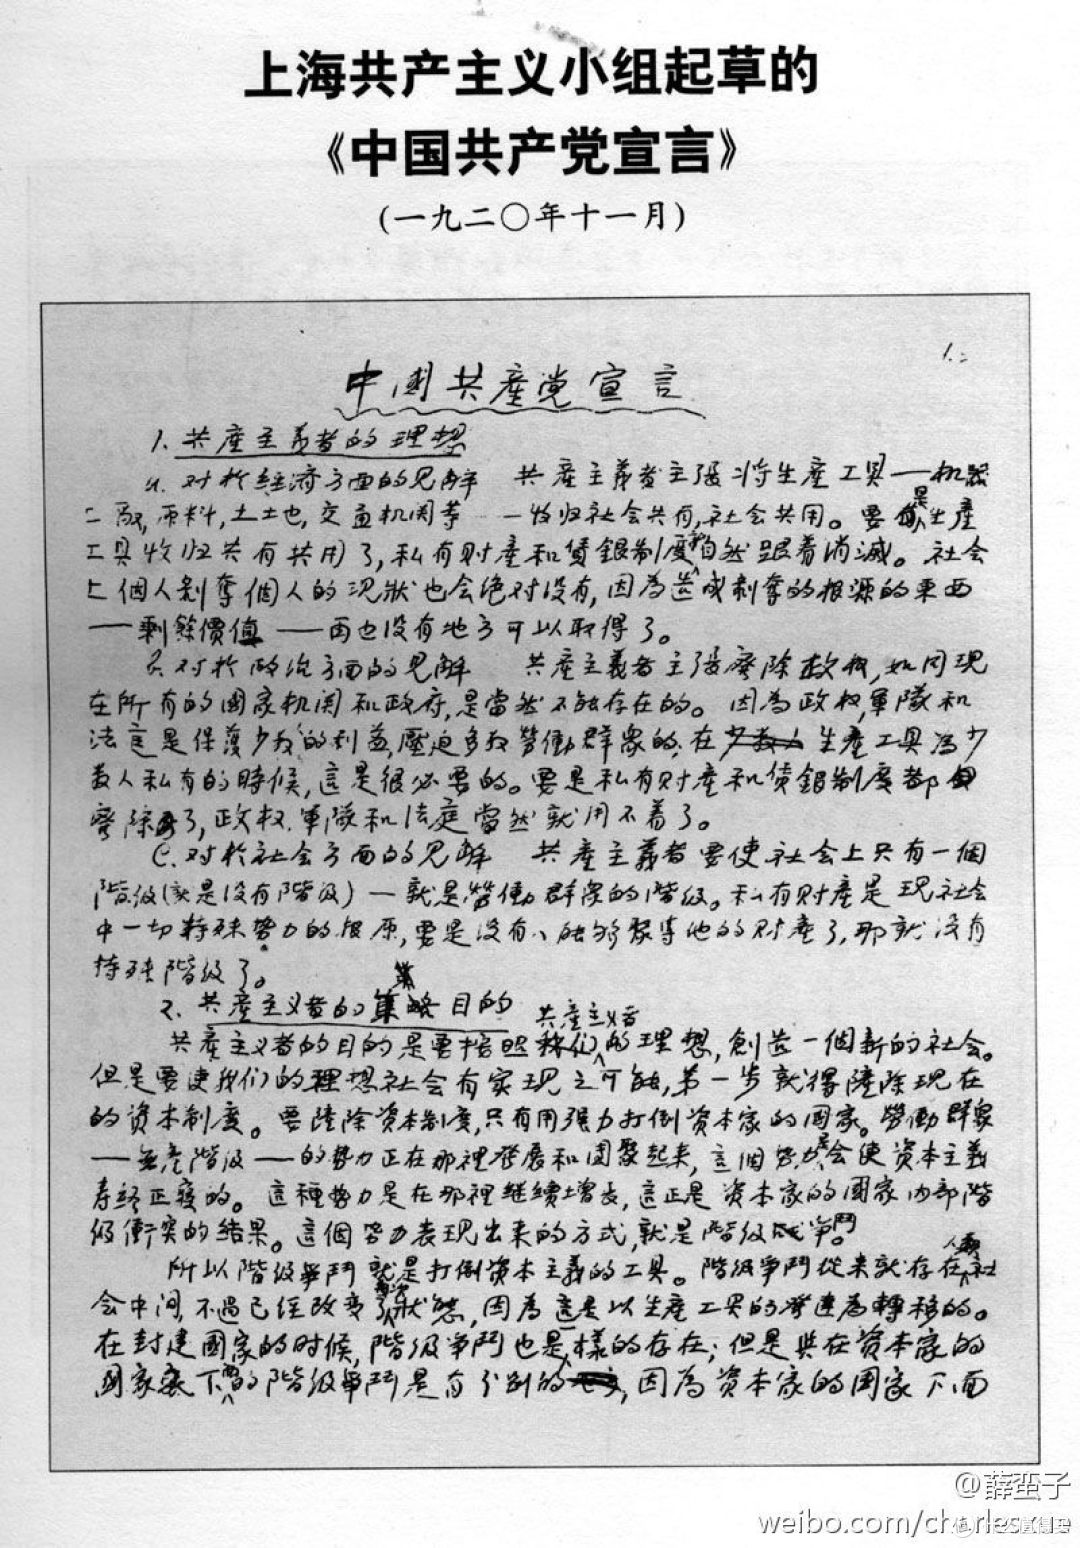 上海共产主义小组起草的
《中国共产党宣言》
(一九二〇年十一月)
1.
中國共產党宣言
1. 共產主義者的理想
a. 对於經濟方面的見解 共產主義者主張将生產工具——机器
工厰,原料,土地,交通机関等——收归社会共有,社会共用。要是生產
工具收归共有共用了,私有財產和賃銀制度就自然跟着消滅。社会
上個人剥奪個人的現狀也会絕对没有,因為造成剥奪的根源的東西
——剩餘價值——再也没有地方可以取得了。
B. 对於政治方面的見解 共產主義者主張廃除政权,如同現
在所有的國家机関和政府,是當然不能存在的。因為政权,軍隊和
法庭是保護少数人的利益,壓迫多数勞働群衆的;在生產工具為少
数人私有的時候,這是很必要的。要是私有財產和賃銀制度都
廃除了,政权,軍隊和法庭當然就用不着了。
C. 对於社会方面的見解 共產主義者要使社会上只有一個
階級(就是没有階級)——就是勞働群衆的階級。私有財產是現社会
中一切特殊势力的根原,要是没有人能够聚集他的財產了,那就没有
特殊階級了。
2. 共產主义者的目的
共產主义者的目的是要按照共產主义者的理想,創造一個新的社会。
但是要使我们的理想社会有实現之可能,第一步就得鏟除現在
的資本制度。要鏟除資本制度,只有用强力打倒資本家的國家。勞働群衆
——無產階級——的势力正在那裡發展和團聚起來,這個势力是会使資本主義
寿終正寢的。這種势力是在那裡継續增長,這正是資本家的國家内部階
級衝突的結果。這個势力表現出來的方式,就是階級争鬥。
所以階級争鬥就是打倒資本主義的工具。階級争鬥從來就存在人類社
会中间,不過已經改变了狀態,因為這是以生產工具的發達為轉移的。
在封建國家的时候,階級争鬥也是一樣的存在;但是與在資本家的
國家下面的階級争鬥是有分别的,因為資本家的國家下面
@薛蛮子
weibo.com/charlesxue